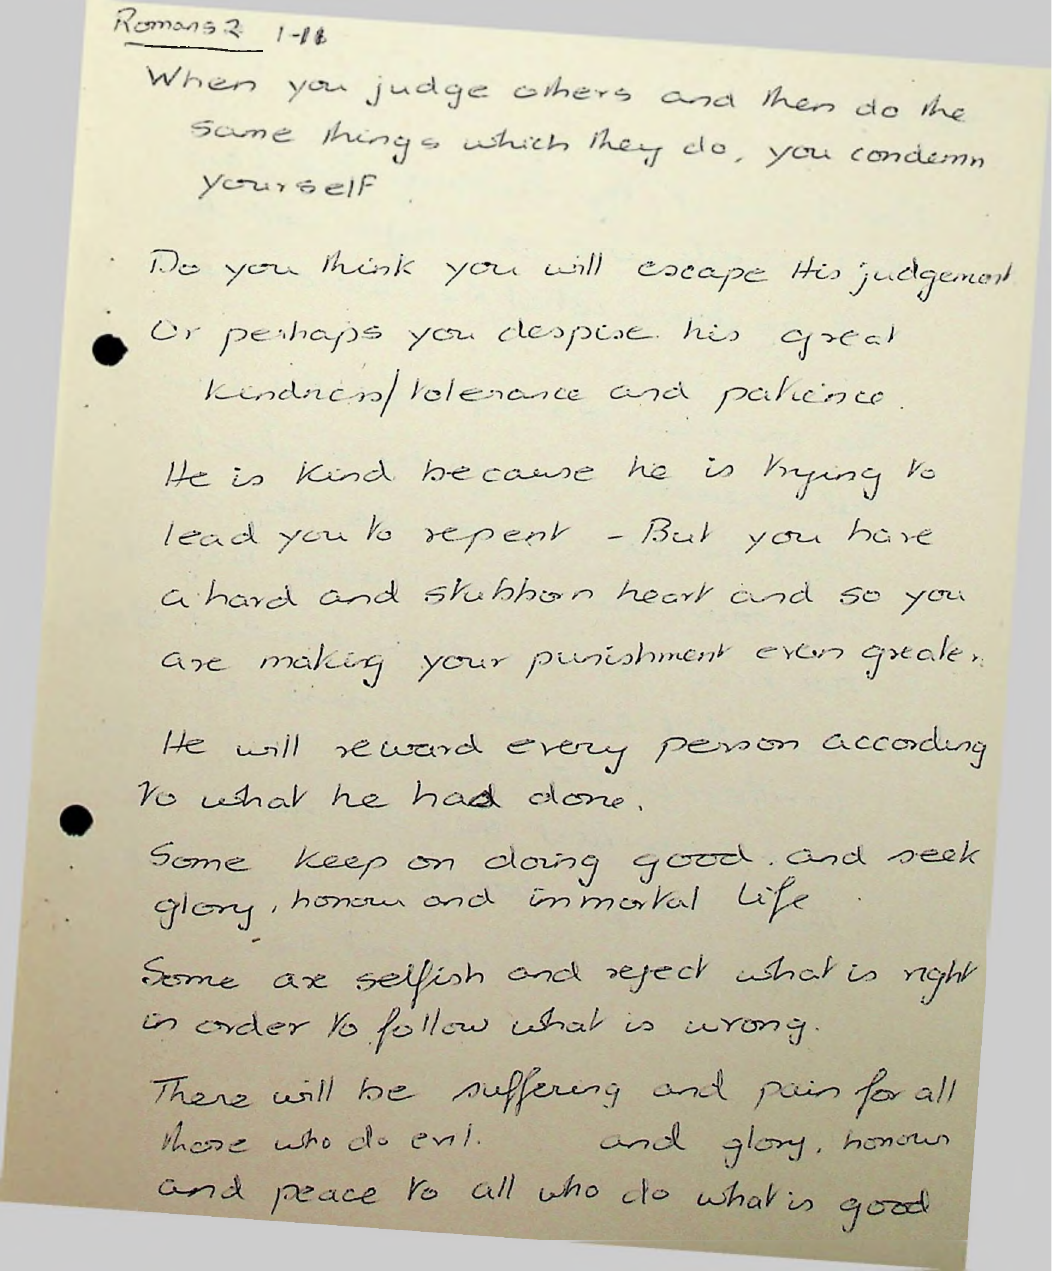 Romans 2 1-11
When you judge others and then do the
same things which they do, you condemn
yourself
Do you think you will escape His judgement
Or perhaps you despise his great
kindness/tolerance and patience.
He is kind because he is trying to
lead you to repent - But you have
a hard and stubborn heart and so you
are making your punishment even greater.
He will reward every person according
to what he had done.
Some keep on doing good. and seek
glory, honour and immortal life
Some are selfish and reject what is right
in order to follow what is wrong.
There will be suffering and pain for all
those who do evil. and glory, honour
and peace to all who do what is good